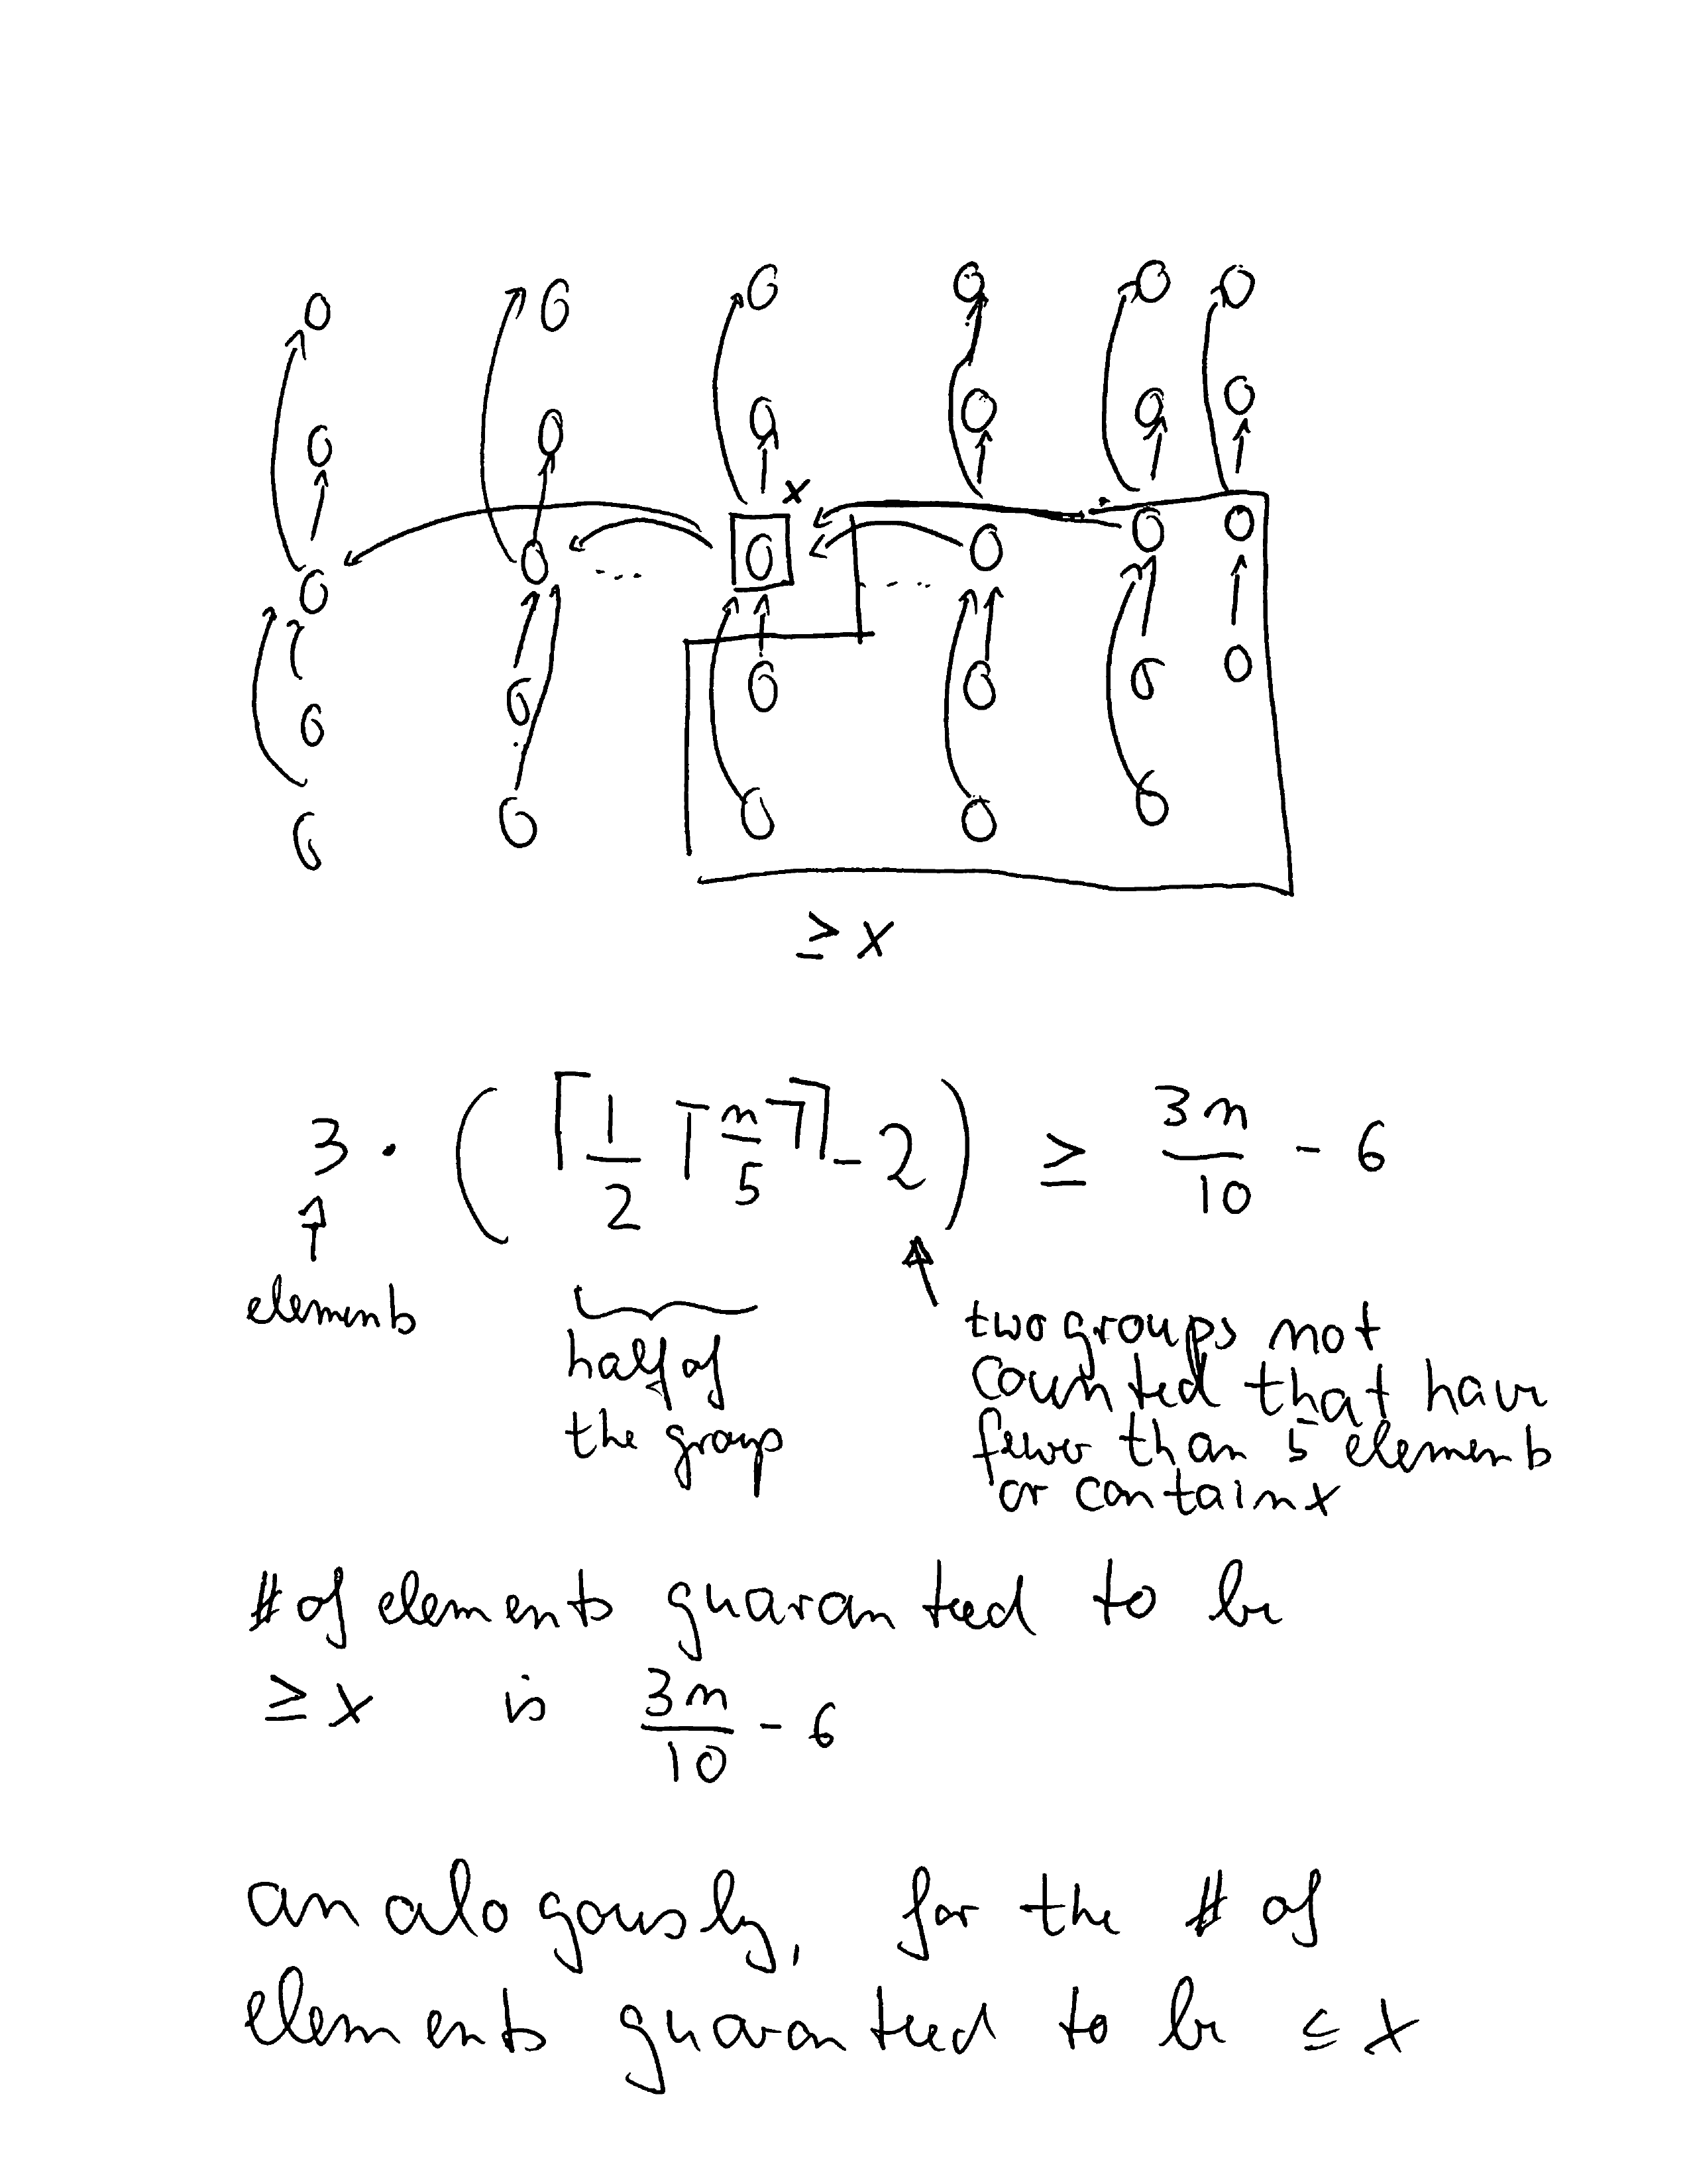 x
≥ x
3 · ( ⌈ 1/2 ⌈ n/5 ⌉ ⌉ - 2 ) ≥ 3n/10 - 6
elements
half of
the group
two groups not
counted that have
fewer than 5 elements
or contain x
# of elements guaranteed to be
≥ x is 3n/10 - 6
analogously, for the # of
elements guaranteed to be ≤ x